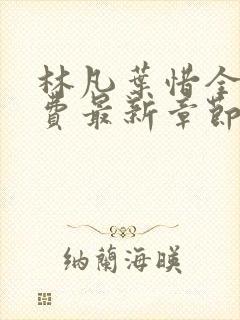 林凡葉惜全
費最新章節
納蘭海暎